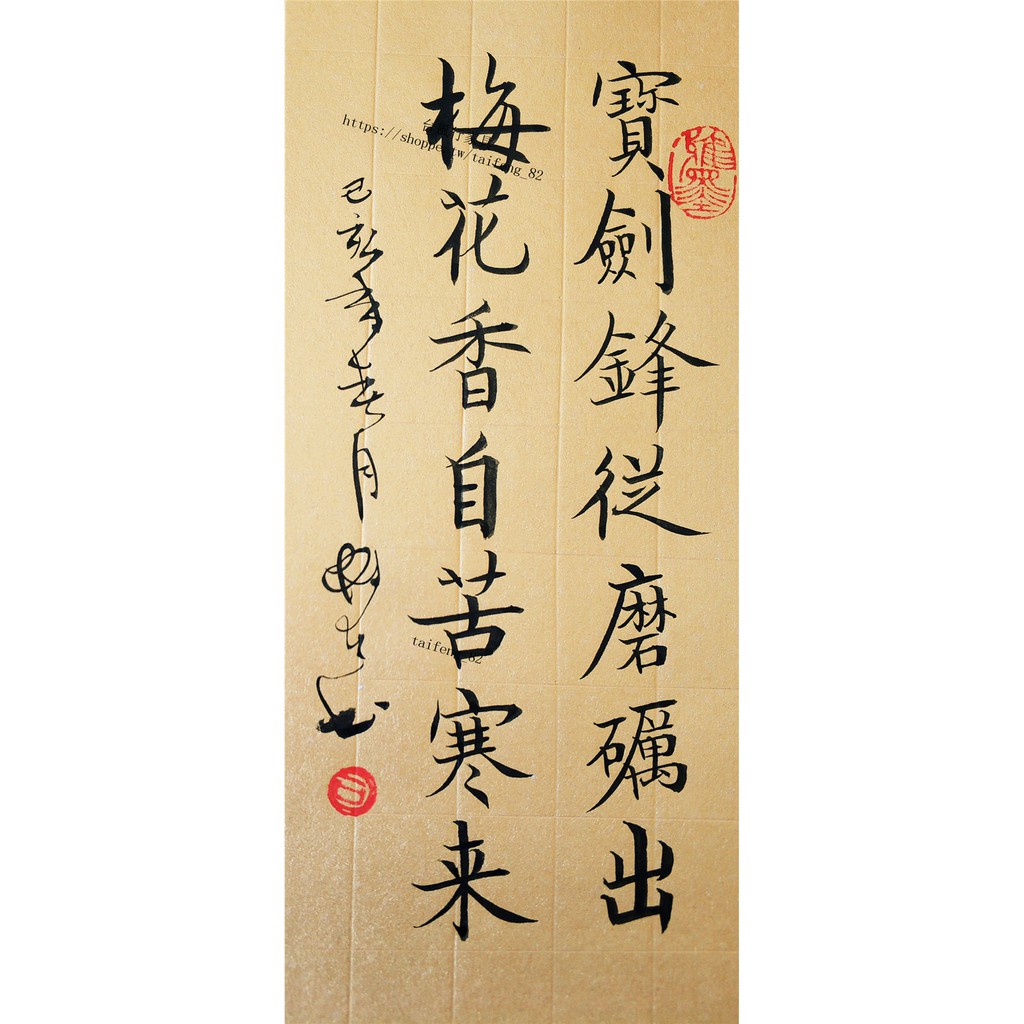 寶劍鋒從磨礪出
梅花香自苦寒来
己亥年春月
https://shoppe.tw/taifeng_82
taifeng_82